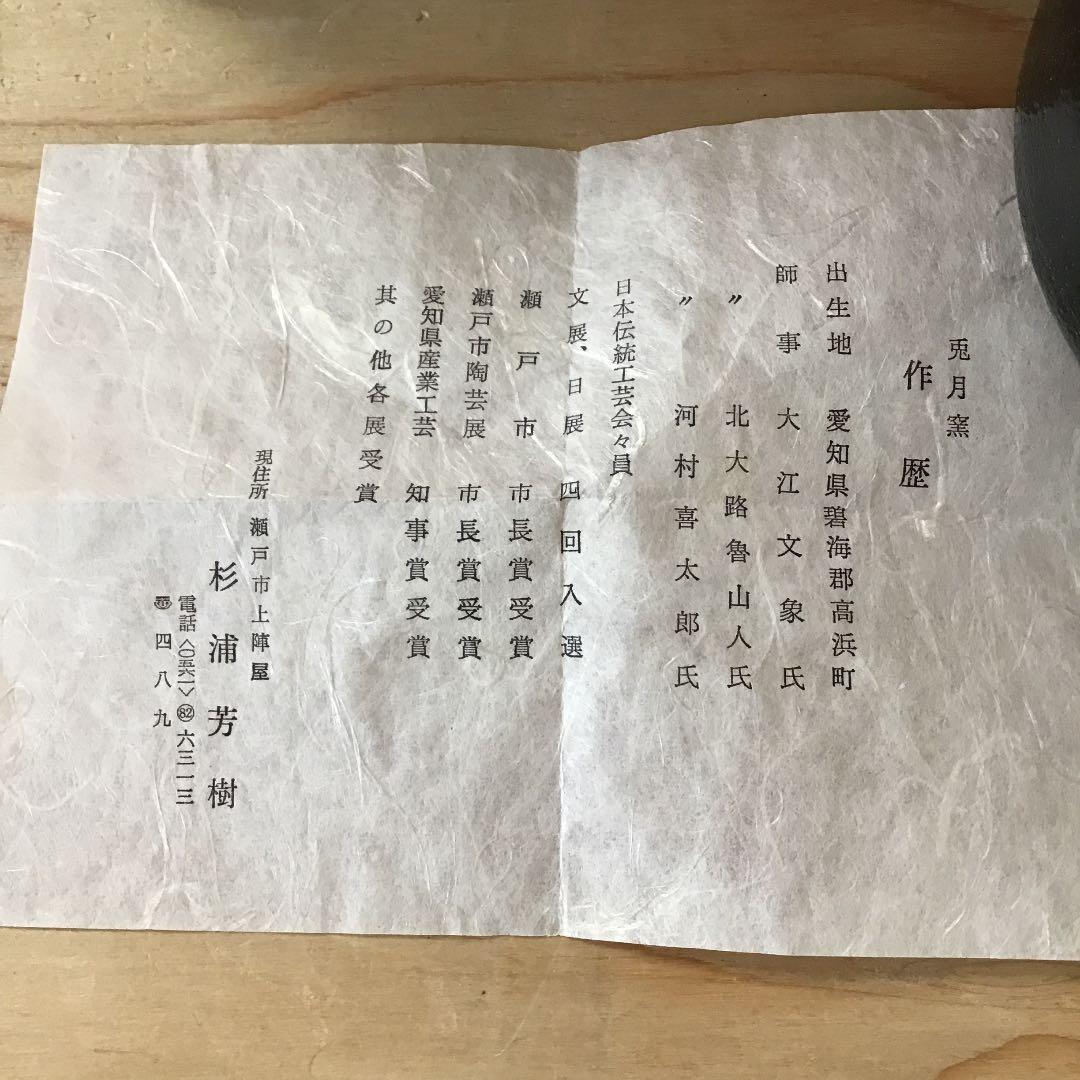 兎月窯
作歴
出生地 愛知県碧海郡高浜町
師事 大江文象氏
〃 北大路魯山人氏
〃 河村喜太郎氏
日本伝統工芸会々員
文展、日展 四回入選
瀬戸市 市長賞受賞
瀬戸市陶芸展 市長賞受賞
愛知県産業工芸 知事賞受賞
其の他各展受賞
現住所 瀬戸市上陣屋
杉浦芳樹
電話〈〇五六一〉82六三一三
四八九